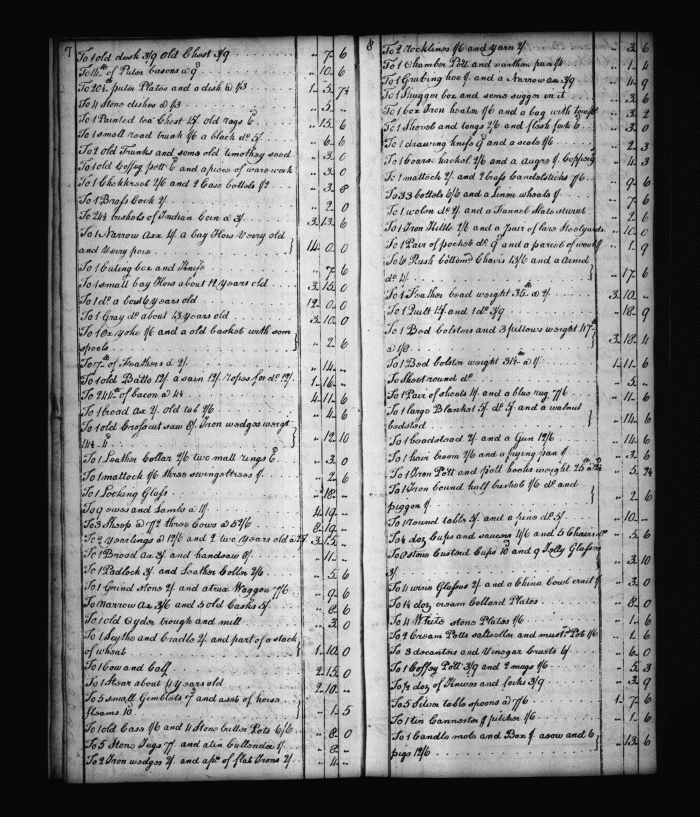 7
To 1 old desk 3/9 Old Chest 3/9 .. 7. 6
To 14 lb of Puter basons @ 9d .. 10. 6
To 20 1/4 lb puter Plates and a dish @ 1/3 1. 5. 7 1/2
To 4 Stone dishes @ 1/3 .. 5. ..
To 1 Painted tea Chest 15/. old rags 6d .. 15. 6
To 1 small road trunk 1/6 a black do. 5/. .. 6. 6
To 2 old Trunks and some old timothy seed .. 3. 0
To 1 old Coffey pott 6d and a pices of ware work .. 3. 0
To 1 2/6 and 2 Case bottels 1/2 .. 3. 8
To 1 Brass Cock 2/. .. 2. 0
To 24 1/2 bushels of Indian Corn @ 3/. 3. 13. 6
To 1 Narrow Axx 1/. a bay Hors Verry old
and Verry pore 14. 0. 0
To 1 Cuting box and Knife .. 7. 6
To 1 small bay Hors about 12 Years old 3. 15. 0
To 1 do. a bout 6 years old 12. 0. 0
To 1 Gray do. about 13 years old 3. 10. 0
To 1 Ox yoke 1/6 and a old basket with som
spools .. 2. 6
To 7 lb of Feathers @ 2/. .. 14. ..
To 1 old Batto 12/. a sain 12/. ropes for do. 12/. 1. 16. ..
To 244 lb of bacon @ 4 1/2 4. 11. 6
To 1 broad Ax 2/. old tub 2/6 .. 4. 6
To 1 old Crosscut saw 8/. Iron wedges weigt
14 1/2 .. 12. 10
To 1 Leather Collar 2/6 two mall rings 6d .. 3. 0
To 1 mattock 1/6 three swingeltrees 1/. .. 2. 6
To 1 Looking Glass .. 18. ..
To 9 ewes and Lambs @ 11/. 4. 19. ..
To 3 Sheep @ 7/2 three Cows @ 52/6 8. 19. ..
To 2 yearlings @ 12/6 and 2 two years old @ 25/. 3. 15. ..
To 1 Broad Ax 3/. and handsaw 8/. .. 11. ..
To 1 Padlock 3/. and Leather Coller 2/6 .. 5. 6
To 1 Grind stone 2/. and a trux Waggon 7/6 .. 9. 6
To Narrow Ax 3/6 and 5 old Casks 5/. .. 8. 6
To 1 old Cyder trough and mill .. 3. 0
To 1 Sythe and Cradle 2/. and part of a stack
of wheat 1. 10. 0
To 1 Cow and Calf 2. 15. 0
To 1 Stear about 4 years old 2. 10. ..
To 5 small Gimblets 7d and a set of horse
fleams 10d .. 1. 5
To 1 old Case 1/6 and 4 Stone butter Pots 6/6 .. 8. 0
To 5 Stone Jugs 7/. and a tin Cullender 1/. .. 8. ..
To 2 Iron wedges 2/. and a pr. of flat Irons 2/. .. 4. ..
8
To 2 1/6 and yarn 2/. .. 3. 6
To 1 Chamber Pott and earthen pan 1/4 .. 1. 4
To 1 Grubing hoe 1/. and a Narrow ax 3/9 .. 4. 9
To 1 Shugger box and some sugger in it .. 3. 6
To 1 box Iron heater 1/6 and a bag with .. 3. 2
To 1 Shovel and tongs 2/6 and flesh fork 6d .. 3. 0
To 1 drawing knife 9d and a scale 1/6 .. 2. 3
To 1 Coars hackel 2/6 and a Augre 1/. .. 4. 3
To 1 mattock 2/. and 2 brass Candelsticks 7/6 .. 9. 6
To 33 bottels 6/6 and a Linen wheale 1/. .. 7. 6
To 1 wolen do. 2/. and a Hannel .. 2. 6
To 1 Iron Kittle 2/6 and a pair of lars Steelyards .. 10. 0
To 1 Pair of pocket do. 9d and a parcel of wool 1/. .. 1. 9
To 6 Rush bottemd Chairs 13/6 and a Armd
do. 4/. .. 17. 6
To 1 Feather bead weight 35 lb @ 2/. 3. 10. ..
To 1 Quilt 15/. and 1 do. 3/9 .. 18. 9
To 1 Bed bolsters and 3 pillows weight 47 lb
@ 1/8 3. 18. 4
To 1 Bed bolster weight 31 1/2 lb @ 1/. 1. 11. 6
To Sheet round do. .. 5. ..
To 1 Pair of sheets 4/. and a blus rug 7/6 .. 11. 6
To 1 large Blanket 5/. do. 5/. and a walnut
bedsted .. 14. 6
To 1 beadstead 2/. and a Gun 12/6 .. 14. 6
To 1 hair broom 2/6 and a frying pan 1/. .. 3. 6
To 1 Iron Pott and pott hooks weight 25 lb @ 2 1/2 .. 5. 2 1/2
To 1 Iron bound half bushel 1/6 do. and
piggon 1/. .. 2. 6
To 1 round table 5/. and a pine do. 5/. .. 10. ..
To 1/2 doz Cups and saucers 1/6 and 5 Chairs .. 5. 6
To 8 stone Custard Cups 10d and 9 Jelly Glasses
3/. .. 3. 10
To 4 wine Glasses 2/. and a China bowl crackt 1/. .. 3. 0
To 1 1/2 doz cream Collard Plates .. 8. 0
To 4 White stone Plates 1/6 .. 1. 6
To 2 Cream Potts saltseller and mustd. Pot 1/6 .. 1. 6
To 3 decanters and Vinegar Cruets 6/. .. 6. 0
To 1 Coffey Pott 3/9 and 2 mugs 1/6 .. 5. 3
To 1/2 doz of Knives and forks 3/9 .. 3. 9
To 5 Silver table spoons @ 7/6 1. 7. 6
To 1 tin Cannester & pitcher 1/6 .. 1. 6
To 1 Candle mole and Box 1/. a sow and 6
pigs 12/6 .. 13. 6